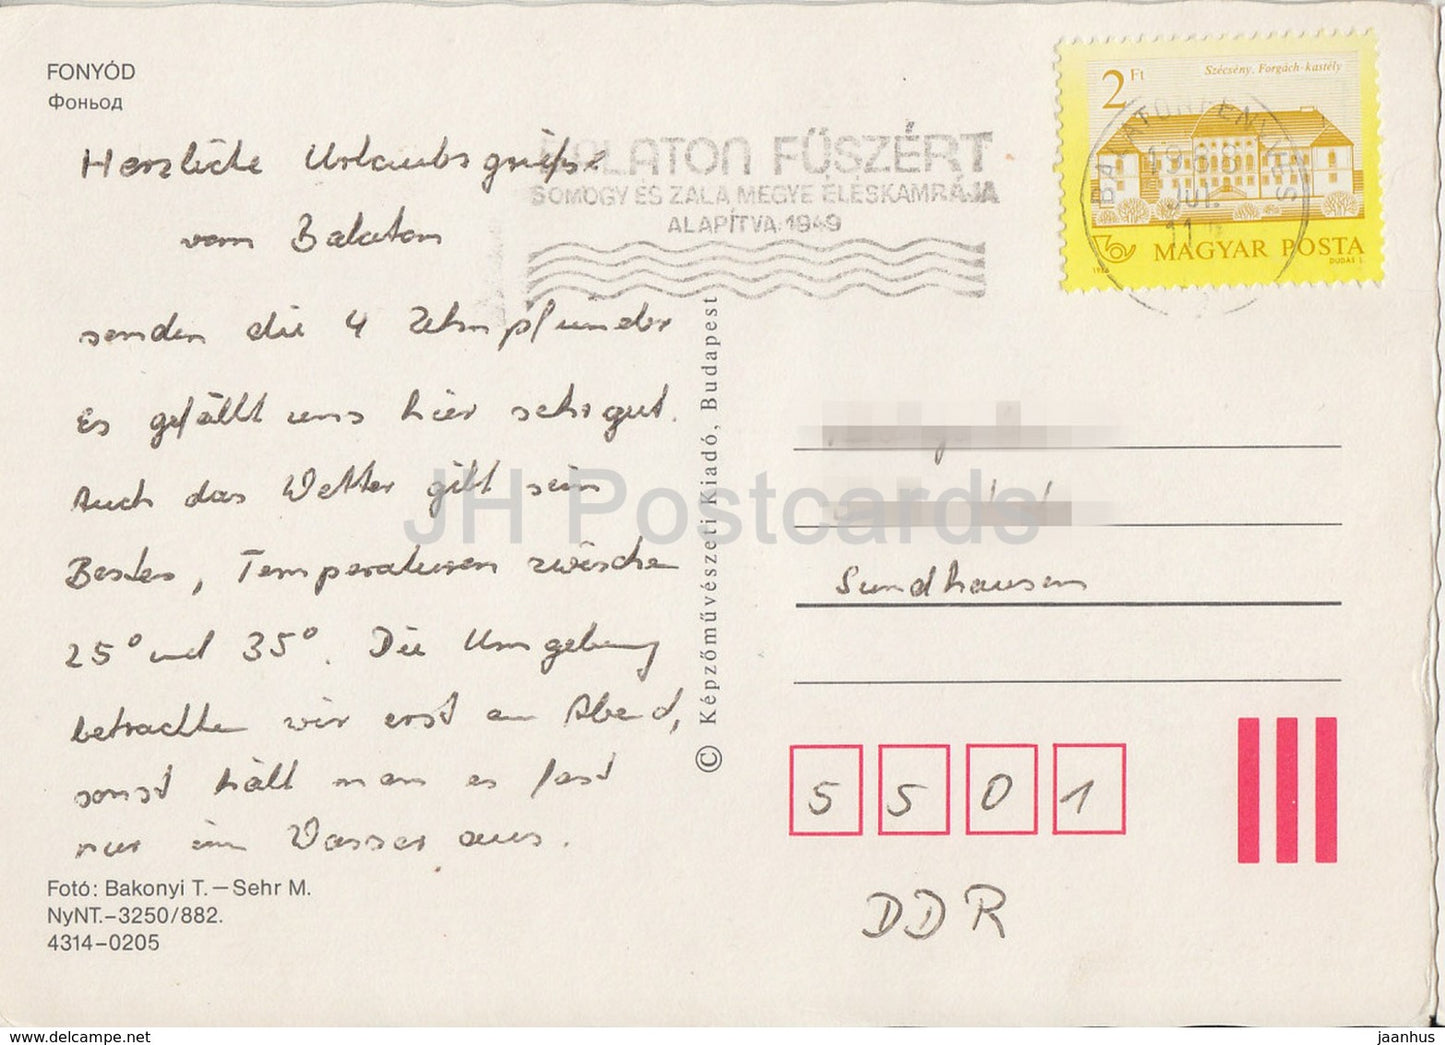 FONYÓD
Фоньод
Herzliche Urlaubsgrüße
vom Balaton
senden die 4 Zehnpfunder
Es gefällt uns hier sehr gut.
Auch das Wetter gibt sein
Bestes, Temperaturen zwischen
25° und 35°. Die Umgebung
betrachten wir erst am Abend,
sonst hält man es fast
nur im Wasser aus.
Fotó: Bakonyi T.—Sehr M.
NyNT.–3250/882.
4314–0205
BALATON FŰSZÉRT
SOMOGY ÉS ZALA MEGYE ÉLÉSKAMRÁJA
ALAPÍTVA:1949
© Képzőművészeti Kiadó, Budapest
2 Ft
Szécsény, Forgách-kastély
MAGYAR POSTA
1986 DUDÁS L.
JH Postcards
Sundhausen
5 5 0 1
DDR
https://www.delcampe.net
jaanhus